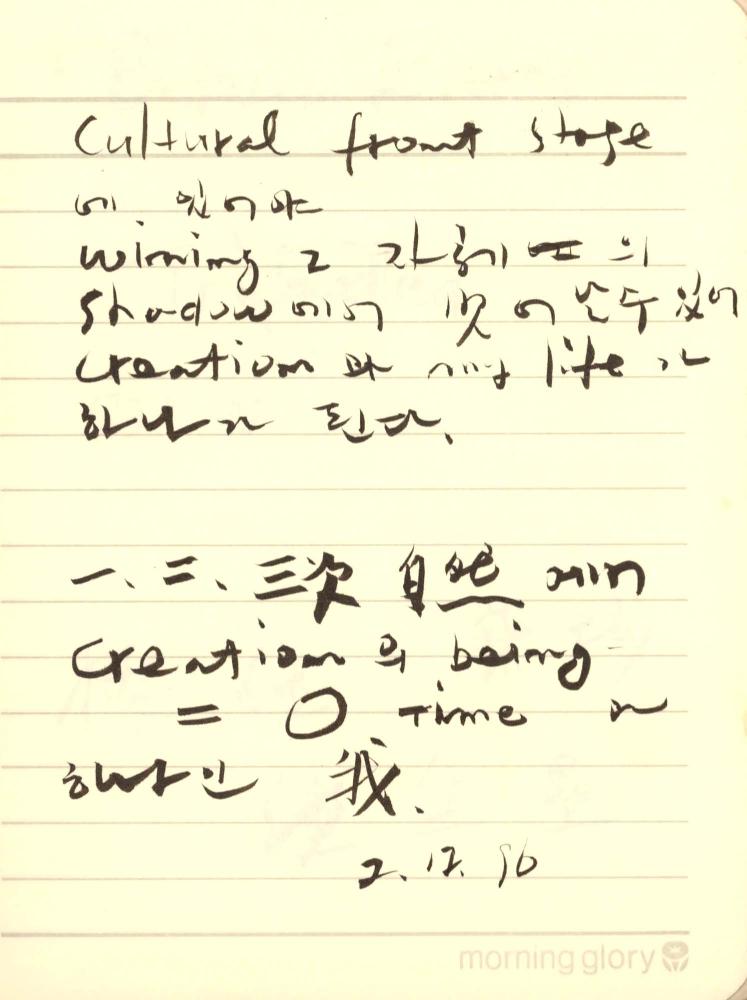 Cultural front stage
에 있어야
winning 그 자체의
Shadow에서 벗어날수 있어
Creation 과 my life 가
하나가 된다.
一、二、三次 自然 에서
Creation 의 being
= O Time 가
하나인 我.
2. 12. 96
morning glory